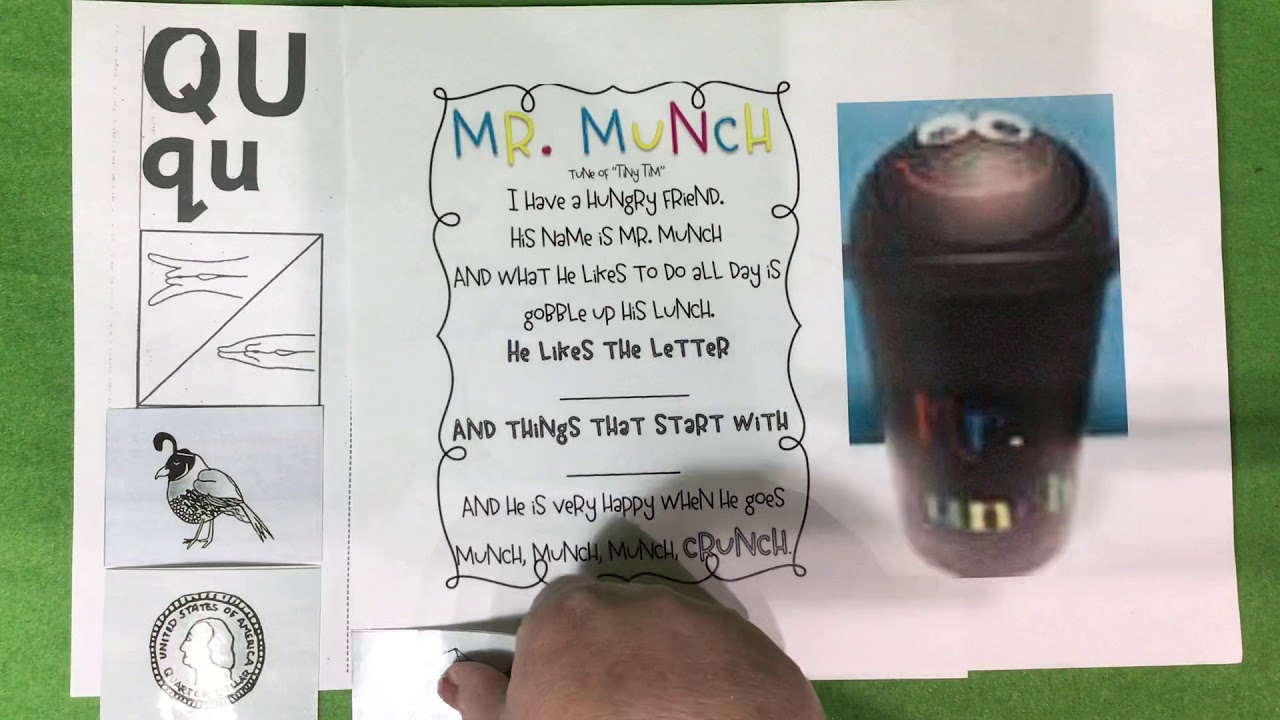 QU
qu
UNITED STATES OF AMERICA
QUARTER
MR. MUNCH
TUNE OF "TINY TIM"
I Have a HUNgRY FRIEND.
HIS NaME IS MR. MUNCH
AND WHAT HE LIKES TO DO aLL Day IS
gOBBLE UP HIS LUNCH.
HE LIKES THE LETTER
AND THINgS THAT START WITH
AND HE IS VERY HaPPY WHEN HE gOES
MUNCH, MUNCH, MUNCH, CRUNCH.